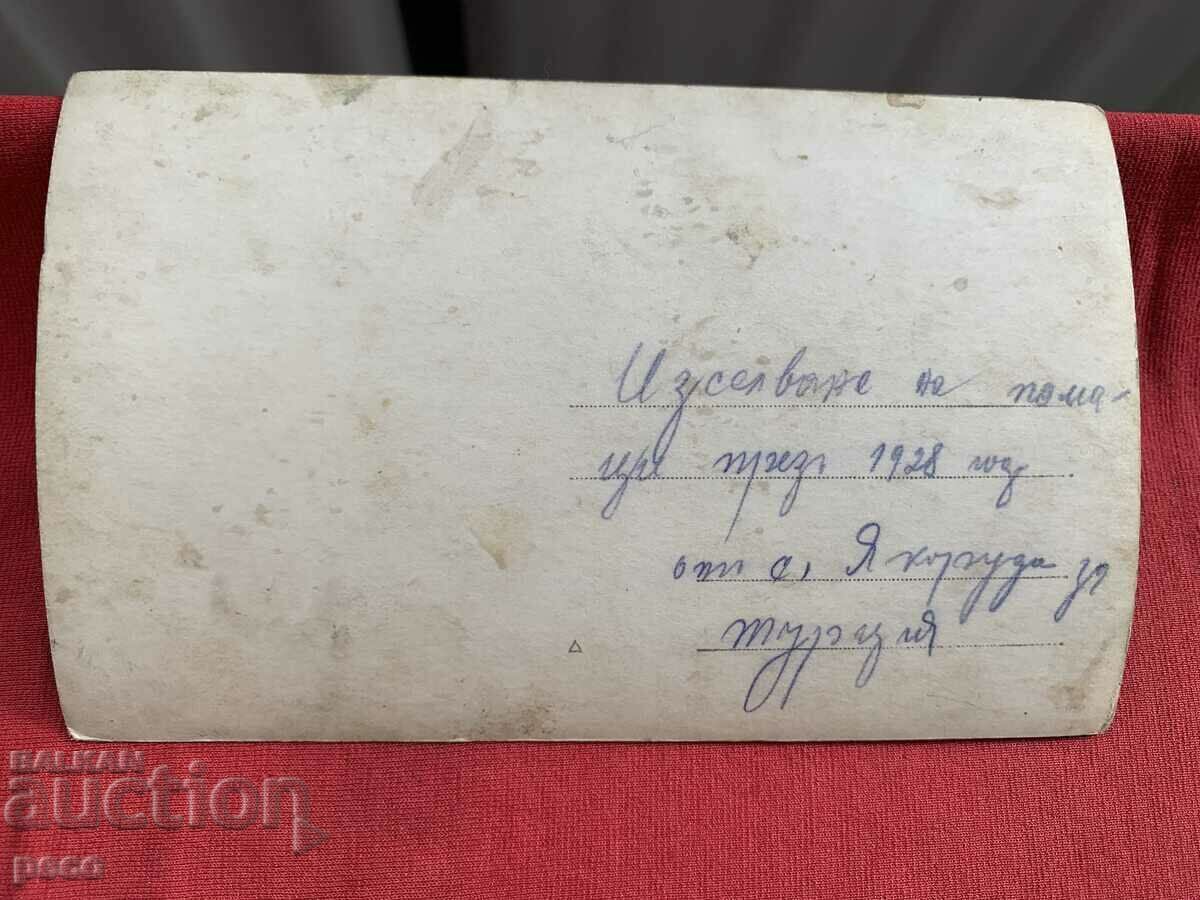 Изселване на пома-
ци през 1928 год.
от с. Якоруда за
Турция
BALKAN
auction
peco